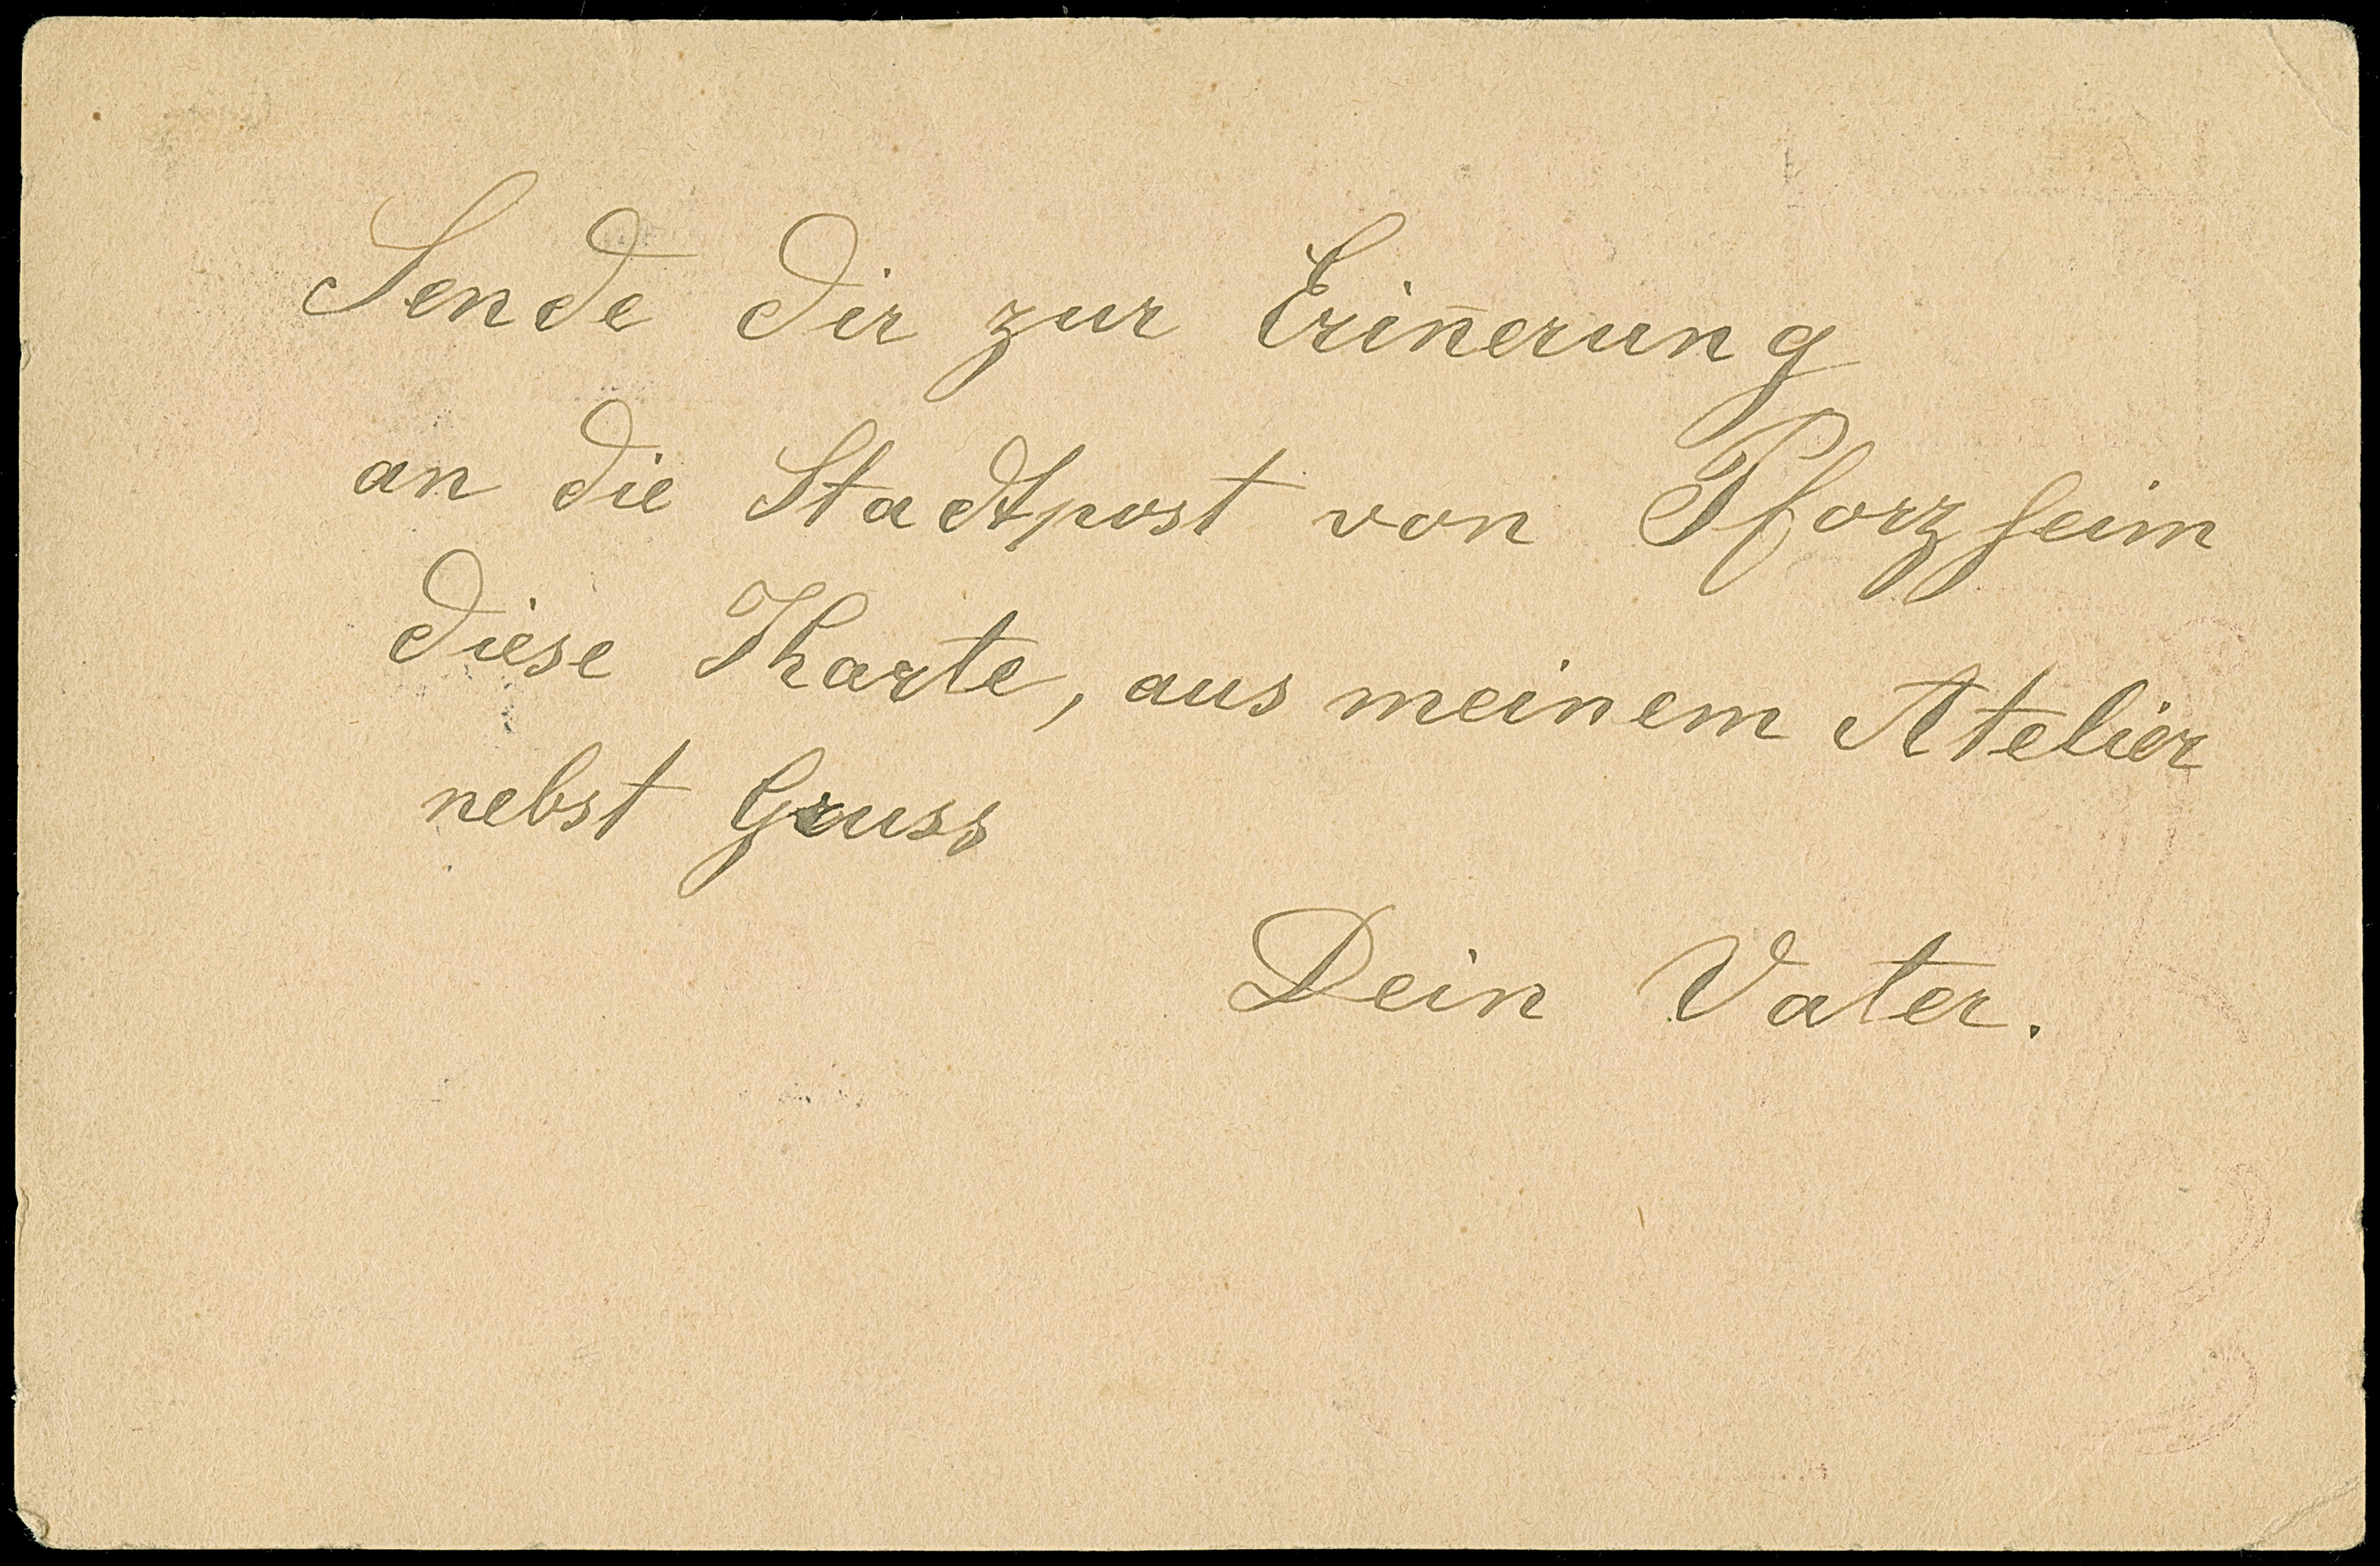 Sende dir zur Erin̄erung
an die Stadtpost von Pforzheim
diese Kharte, aus meinem Atelier
nebst Gruss
Dein Vater.